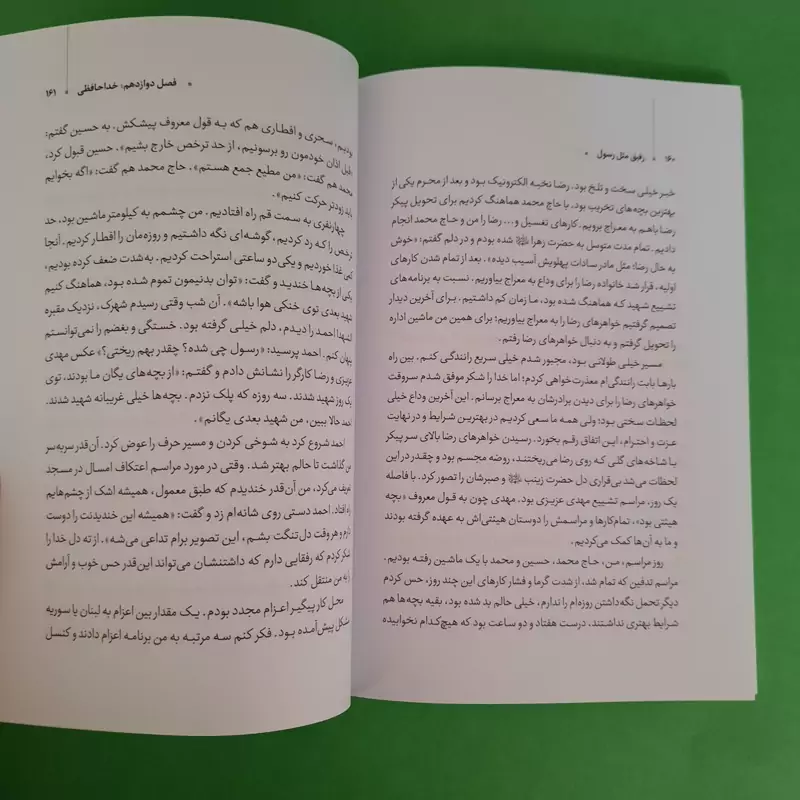 ۱۶۰ • رفیق مثل رسول •
خبر خیلی سخت و تلخ بود. رضا نخبه الکترونیک بود و بعد از محرم یکی از
بهترین بچه‌های تخریب بود. با حاج محمد هماهنگ کردیم برای تحویل پیکر
رضا باهم به معراج برویم. کارهای تغسیل و... رضا را من و حاج محمد انجام
دادیم. تمام مدت متوسل به حضرت زهرا شده بودم و در دلم گفتم: «خوش
به حال رضا؛ مثل مادر سادات پهلویش آسیب دیده». بعد از تمام شدن کارهای
اولیه، قرار شد خانواده رضا را برای وداع به معراج بیاوریم. نسبت به برنامه‌های
تشییع شهید که هماهنگ شده بود، ما زمان کم داشتیم. برای آخرین دیدار
تصمیم گرفتیم خواهرهای رضا را به معراج بیاوریم؛ برای همین من ماشین اداره
را تحویل گرفتم و به دنبال خواهرهای رضا رفتم.
مسیر خیلی طولانی بود. مجبور شدم خیلی سریع رانندگی کنم. بین راه
بارها بابت رانندگی‌ام معذرت‌خواهی کردم؛ اما خدا را شکر موفق شدم سروقت
خواهرهای رضا را برای دیدن برادرشان به معراج برسانم. این آخرین وداع خیلی
لحظات سختی بود؛ ولی همه ما سعی کردیم در بهترین شرایط و در نهایت
عزت و احترام، این اتفاق رقم بخورد. رسیدن خواهرهای رضا بالای سر پیکر
با شاخه‌های گلی که روی رضا می‌ریختند، روضه مجسم بود و چقدر در این
لحظات می‌شد بی‌قراری دل حضرت زینب و صبرشان را تصور کرد. با فاصله
یک روز، مراسم تشییع مهدی عزیزی بود. مهدی چون به قول معروف «بچه
هیئتی بود»، تمام‌کارها و مراسمش را دوستان هیئتی‌اش به عهده گرفته بودند
و ما به آن‌ها کمک می‌کردیم.
روز مراسم، من، حاج محمد، حسین و محمد با یک ماشین رفته بودیم.
مراسم تدفین که تمام شد، از شدت گرما و فشار کارهای این چند روز، حس کردم
دیگر تحمل نگه‌داشتن روزه‌ام را ندارم، خیلی حالم بد شده بود، بقیه بچه‌ها هم
شرایط بهتری نداشتند، درست هفتاد و دو ساعت بود که هیچ‌کدام نخوابیده
• فصل دوازدهم: خداحافظی • ۱۶۱
بودیم، سحری و افطاری هم که به قول معروف پیشکش. به حسین گفتم:
اذان خودمون رو برسونیم، از حد ترخص خارج بشیم». حسین قبول کرد،
محمد هم گفت: «من مطیع جمع هستم». حاج محمد هم گفت: «اگه بخوایم
باید زودتر حرکت کنیم».
چهارنفری به سمت قم راه افتادیم. من چشمم به کیلومتر ماشین بود. حد
ترخص را که رد کردیم، گوشه‌ای نگه داشتیم و روزه‌مان را افطار کردیم. آنجا
غذا خوردیم و یکی‌دو ساعتی استراحت کردیم. به‌شدت ضعف کرده بودیم،
یکی از بچه‌ها خندید و گفت: «توان بدنیمون تموم شده بود، هماهنگ کنیم
شهید بعدی توی خنکی هوا باشه». آن شب وقتی رسیدم شهرک، نزدیک مقبره
الشهدا احمد را دیدم، دلم خیلی گرفته بود. خستگی و بغضم را نمی‌توانستم
پنهان کنم. احمد پرسید: «رسول چی شده؟ چقدر بهم ریختی؟» عکس مهدی
عزیزی و رضا کارگر را نشانش دادم و گفتم: «از بچه‌های یگان ما بودند، توی
یک روز شهید شدند. سه روزه که پلک نزدم. بچه‌ها خیلی غریبانه شهید شدند.
احمد حالا ببین، من شهید بعدی یگانم».
احمد شروع کرد به شوخی کردن و مسیر حرف را عوض کرد. آن‌قدر سربه‌سر
من گذاشت تا حالم بهتر شد. وقتی در مورد مراسم اعتکاف امسال در مسجد
تعریف می‌کرد، من آن‌قدر خندیدم که طبق معمول، همیشه اشک از چشم‌هایم
راه افتاد. احمد دستی روی شانه‌ام زد و گفت: «همیشه این خندیدنت را دوست
دارم و هر وقت دل‌تنگت بشم، این تصویر برام تداعی می‌شه». از ته دل خدا را
شکر کردم که رفقایی دارم که داشتنشان می‌تواند این‌قدر حس خوب و آرامش
را به من منتقل کند.
محل کار پیگیر اعزام مجدد بودم. یک مقدار بین اعزام به لبنان یا سوریه
مشکل پیش‌آمده بود. فکر کنم سه مرتبه به من برنامه اعزام دادند و کنسل